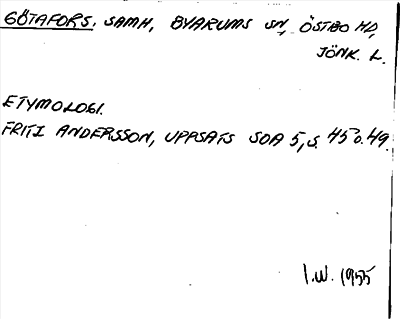 GÖTAFORS, SAMH, BYARUMS SN, ÖSTBO HD,
JÖNK. L.
ETYMOLOGI.
FRITI ANDERSSON, UPPSATS SOA 5, S. 45 o. 49.
I.W. 1955